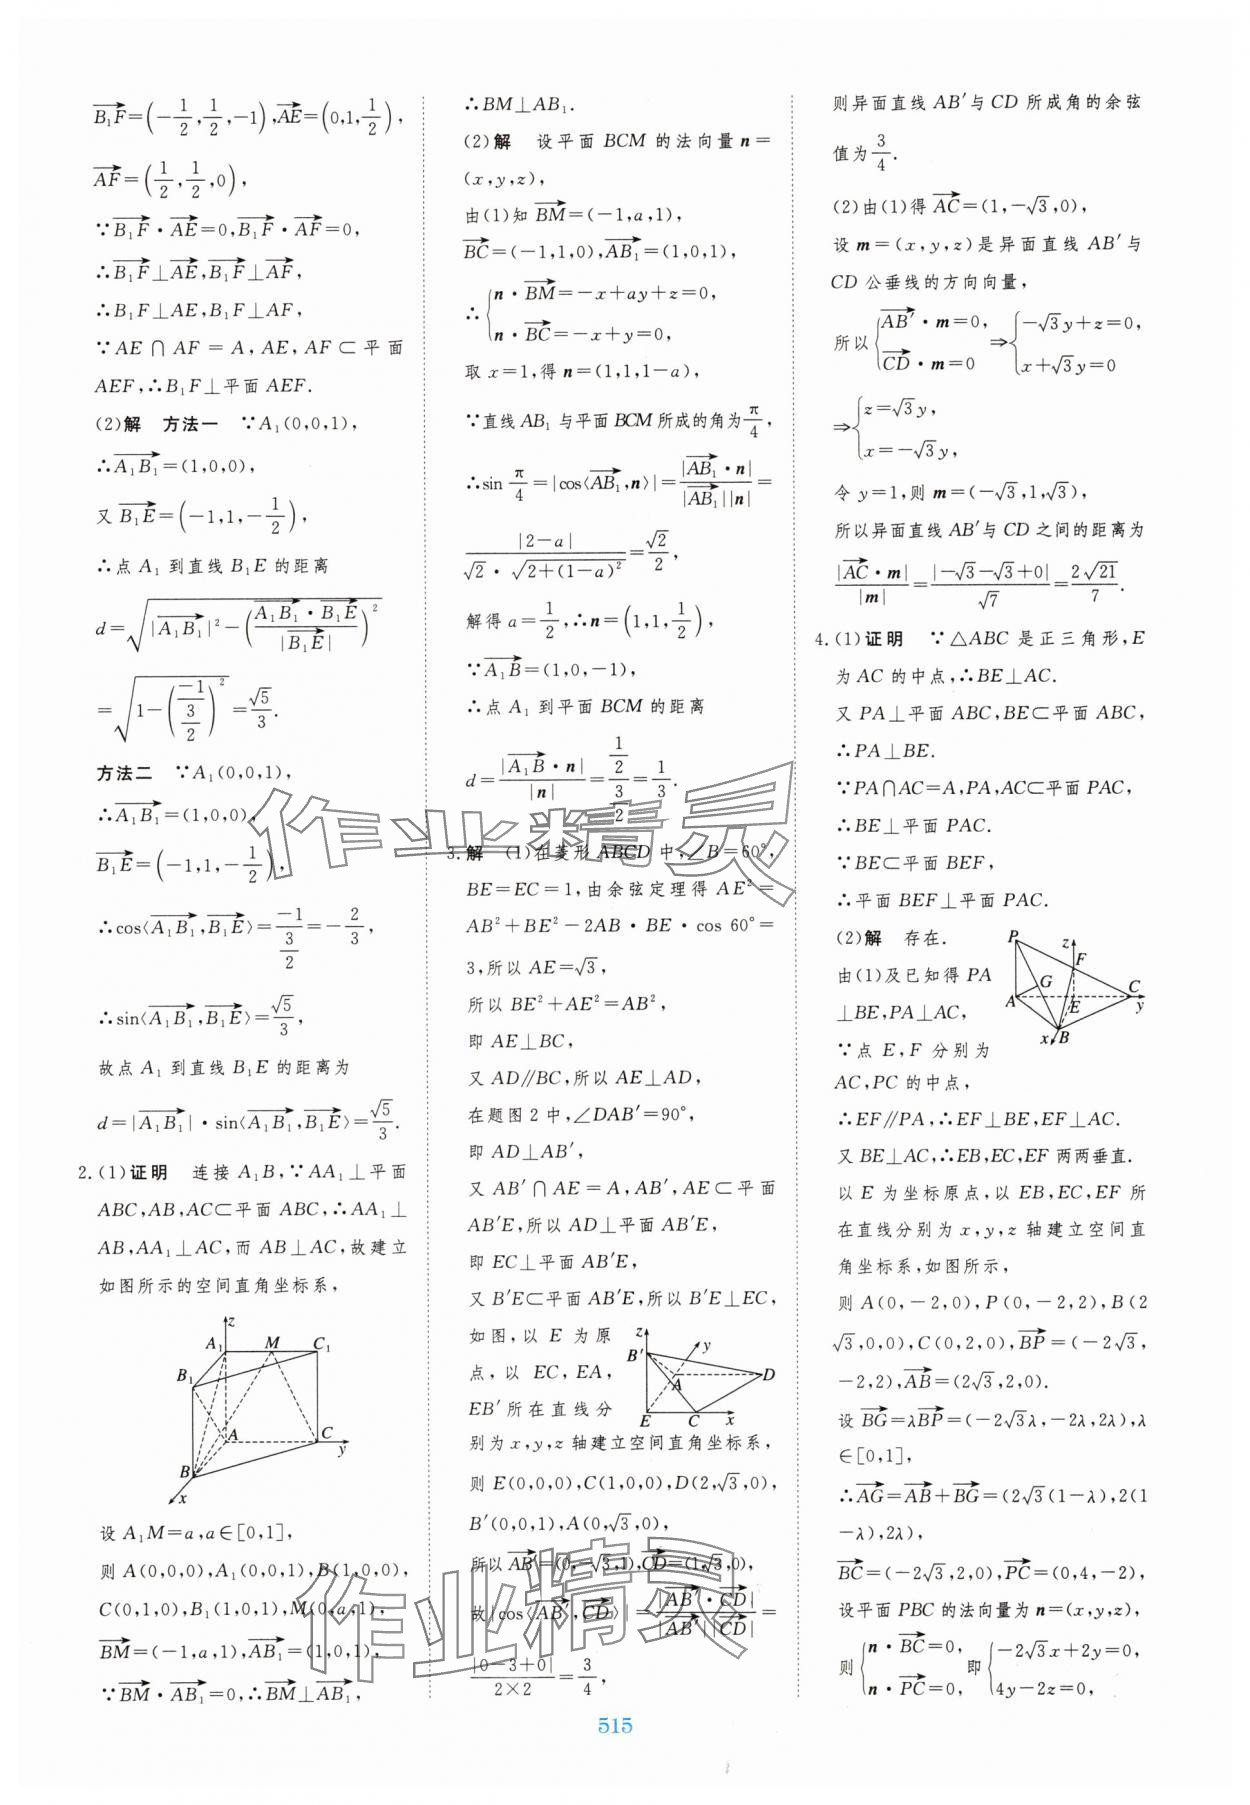 $\overrightarrow{B_1F}=\left(-\frac{1}{2},\frac{1}{2},-1\right),\overrightarrow{AE}=\left(0,1,\frac{1}{2}\right),$
$\overrightarrow{AF}=\left(\frac{1}{2},\frac{1}{2},0\right),$
∵$\overrightarrow{B_1F}·\overrightarrow{AE}=0,\overrightarrow{B_1F}·\overrightarrow{AF}=0,$
∴$\overrightarrow{B_1F}⊥\overrightarrow{AE},\overrightarrow{B_1F}⊥\overrightarrow{AF},$
∴B₁F⊥AE,B₁F⊥AF,
∵AE∩AF=A,AE,AF⊂平面
AEF,∴B₁F⊥平面AEF.
(2)解 方法一 ∵A₁(0,0,1),
∴$\overrightarrow{A_1B_1}=(1,0,0),$
又$\overrightarrow{B_1E}=\left(-1,1,-\frac{1}{2}\right),$
∴点A₁到直线B₁E的距离
$d=\sqrt{|\overrightarrow{A_1B_1}|^2-\left(\frac{\overrightarrow{A_1B_1}·\overrightarrow{B_1E}}{|\overrightarrow{B_1E}|}\right)^2}$
$=\sqrt{1-\left(\frac{-1}{\frac{3}{2}}\right)^2}=\frac{\sqrt5}{3}.$
方法二 ∵A₁(0,0,1),
∴$\overrightarrow{A_1B_1}=(1,0,0),$
$\overrightarrow{B_1E}=\left(-1,1,-\frac{1}{2}\right),$
∴$\cos\langle\overrightarrow{A_1B_1},\overrightarrow{B_1E}\rangle=\frac{-1}{\frac{3}{2}}=-\frac{2}{3},$
∴$\sin\langle\overrightarrow{A_1B_1},\overrightarrow{B_1E}\rangle=\frac{\sqrt5}{3},$
故点A₁到直线B₁E的距离为
$d=|\overrightarrow{A_1B_1}|·\sin\langle\overrightarrow{A_1B_1},\overrightarrow{B_1E}\rangle=\frac{\sqrt5}{3}.$
2.(1)证明 连接A₁B,∵AA₁⊥平面
ABC,AB,AC⊂平面ABC,∴AA₁⊥
AB,AA₁⊥AC,而AB⊥AC,故建立
如图所示的空间直角坐标系,
z
A₁ M C₁
B₁
A C
y
B
x
设A₁M=a,a∈[0,1],
则A(0,0,0),A₁(0,0,1),B(1,0,0),
C(0,1,0),B₁(1,0,1),M(0,a,1),
$\overrightarrow{BM}=(-1,a,1),\overrightarrow{AB_1}=(1,0,1),$
∵$\overrightarrow{BM}·\overrightarrow{AB_1}=0,$∴$\overrightarrow{BM}⊥\overrightarrow{AB_1},$
∴BM⊥AB₁.
(2)解 设平面BCM的法向量n=
(x,y,z),
由(1)知$\overrightarrow{BM}=(-1,a,1),$
$\overrightarrow{BC}=(-1,1,0),\overrightarrow{AB_1}=(1,0,1),$
∴$\begin{cases}n·\overrightarrow{BM}=-x+ay+z=0,\\n·\overrightarrow{BC}=-x+y=0,\end{cases}$
取x=1,得n=(1,1,1-a),
∵直线AB₁与平面BCM所成的角为$\frac{π}{4},$
∴$\sin\frac{π}{4}=|\cos\langle\overrightarrow{AB_1},n\rangle|=\frac{|\overrightarrow{AB_1}·n|}{|\overrightarrow{AB_1}||n|}=$
$\frac{|2-a|}{\sqrt2·\sqrt{2+(1-a)^2}}=\frac{\sqrt2}{2},$
解得$a=\frac{1}{2},$∴$n=\left(1,1,\frac{1}{2}\right),$
∵$\overrightarrow{A_1B}=(1,0,-1),$
∴点A₁到平面BCM的距离
$d=\frac{|\overrightarrow{A_1B}·n|}{|n|}=\frac{\frac{1}{2}}{\frac{3}{2}}=\frac{1}{3}.$
3.解 (1)在菱形ABCD中,∠B=60°,
BE=EC=1,由余弦定理得AE²=
AB²+BE²-2AB·BE·cos 60°=
3,所以AE=√3,
所以BE²+AE²=AB²,
即AE⊥BC,
又AD∥BC,所以AE⊥AD,
在题图2中,∠DAB′=90°,
即AD⊥AB′,
又AB′∩AE=A,AB′,AE⊂平面
AB′E,所以AD⊥平面AB′E,
即EC⊥平面AB′E,
又B′E⊂平面AB′E,所以B′E⊥EC,
如图,以E为原
点,以EC,EA,
EB′所在直线分
z
B′ y
A D
E C x
别为x,y,z轴建立空间直角坐标系,
则E(0,0,0),C(1,0,0),D(2,√3,0),
B′(0,0,1),A(0,√3,0),
所以$\overrightarrow{AB'}=(0,-\sqrt3,1),\overrightarrow{CD}=(1,\sqrt3,0),$
故$|\cos\langle\overrightarrow{AB'},\overrightarrow{CD}\rangle|=\frac{|\overrightarrow{AB'}·\overrightarrow{CD}|}{|\overrightarrow{AB'}||\overrightarrow{CD}|}=$
$\frac{|0-3+0|}{2×2}=\frac{3}{4},$
则异面直线AB′与CD所成角的余弦
值为$\frac{3}{4}.$
(2)由(1)得$\overrightarrow{AC}=(1,-\sqrt3,0),$
设m=(x,y,z)是异面直线AB′与
CD公垂线的方向向量,
所以$\begin{cases}\overrightarrow{AB'}·m=0,\\\overrightarrow{CD}·m=0\end{cases}⇒\begin{cases}-\sqrt3y+z=0,\\x+\sqrt3y=0\end{cases}$
$⇒\begin{cases}z=\sqrt3y,\\x=-\sqrt3y,\end{cases}$
令y=1,则m=(-√3,1,√3),
所以异面直线AB′与CD之间的距离为
$\frac{|\overrightarrow{AC}·m|}{|m|}=\frac{|-\sqrt3-\sqrt3+0|}{\sqrt7}=\frac{2\sqrt{21}}{7}.$
4.(1)证明 ∵△ABC是正三角形,E
为AC的中点,∴BE⊥AC.
又PA⊥平面ABC,BE⊂平面ABC,
∴PA⊥BE.
∵PA∩AC=A,PA,AC⊂平面PAC,
∴BE⊥平面PAC.
∵BE⊂平面BEF,
∴平面BEF⊥平面PAC.
(2)解 存在.
由(1)及已知得PA
⊥BE,PA⊥AC,
∵点E,F分别为
P z
F
G C
A E y
x B
AC,PC的中点,
∴EF∥PA,∴EF⊥BE,EF⊥AC.
又BE⊥AC,∴EB,EC,EF两两垂直.
以E为坐标原点,以EB,EC,EF所
在直线分别为x,y,z轴建立空间直
角坐标系,如图所示,
则A(0,-2,0),P(0,-2,2),B(2
√3,0,0),C(0,2,0),$\overrightarrow{BP}=(-2\sqrt3,$
-2,2),$\overrightarrow{AB}=(2\sqrt3,2,0).$
设$\overrightarrow{BG}=λ\overrightarrow{BP}=(-2\sqrt3λ,-2λ,2λ),λ$
∈[0,1],
∴$\overrightarrow{AG}=\overrightarrow{AB}+\overrightarrow{BG}=(2\sqrt3(1-λ),2(1$
-λ),2λ),
$\overrightarrow{BC}=(-2\sqrt3,2,0),\overrightarrow{PC}=(0,4,-2),$
设平面PBC的法向量为n=(x,y,z),
则$\begin{cases}n·\overrightarrow{BC}=0,\\n·\overrightarrow{PC}=0,\end{cases}$即$\begin{cases}-2\sqrt3x+2y=0,\\4y-2z=0,\end{cases}$
作业精灵
作业精灵
515